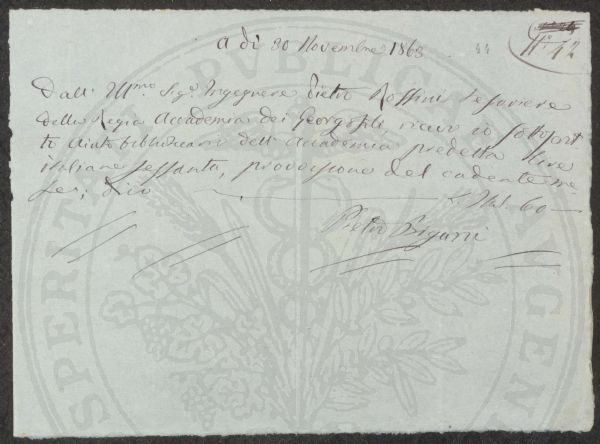 a dì 30 Novembre 1868
44
N° 42
Dall' Ill.mo Sig. Ingegnere Pietro Rossini Tesoriere
della Regia Accademia dei Georgofili, ricevo io sottoscrit
to Aiuto bibliotecario dell' Accademia predetta Lire
italiane sessanta, provvisione del cadente me
se; dico £ Ital. 60
Pietro Bigazzi
PROSPERITATI PUBLICAE AUGENDAE